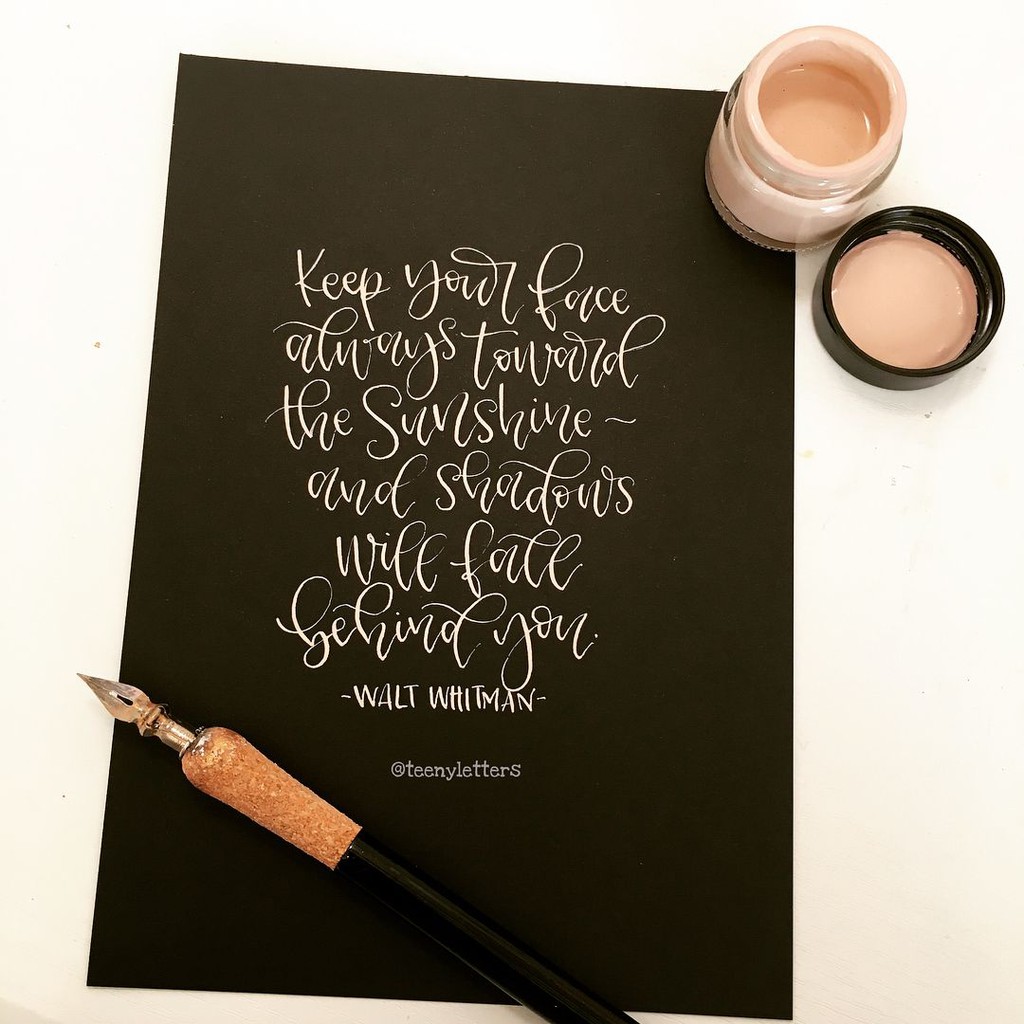 Keep your face
always toward
the Sunshine ~
and shadows
will fall
behind you.
-WALT WHITMAN-
@teenyletters